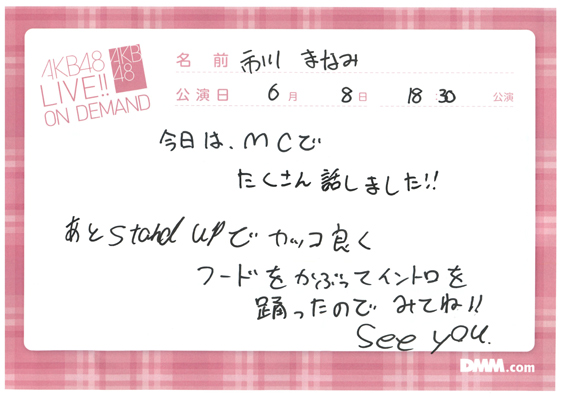 AKB48
LIVE!!
ON DEMAND
AKB
48
名前 市川 まなみ
公演日 6月 8日 18:30 公演
今日は、MCで
たくさん話しました!!
あとStand UPでカッコ良く
フードをかぶってイントロを
踊ったのでみてね!!
See you.
DMM.com